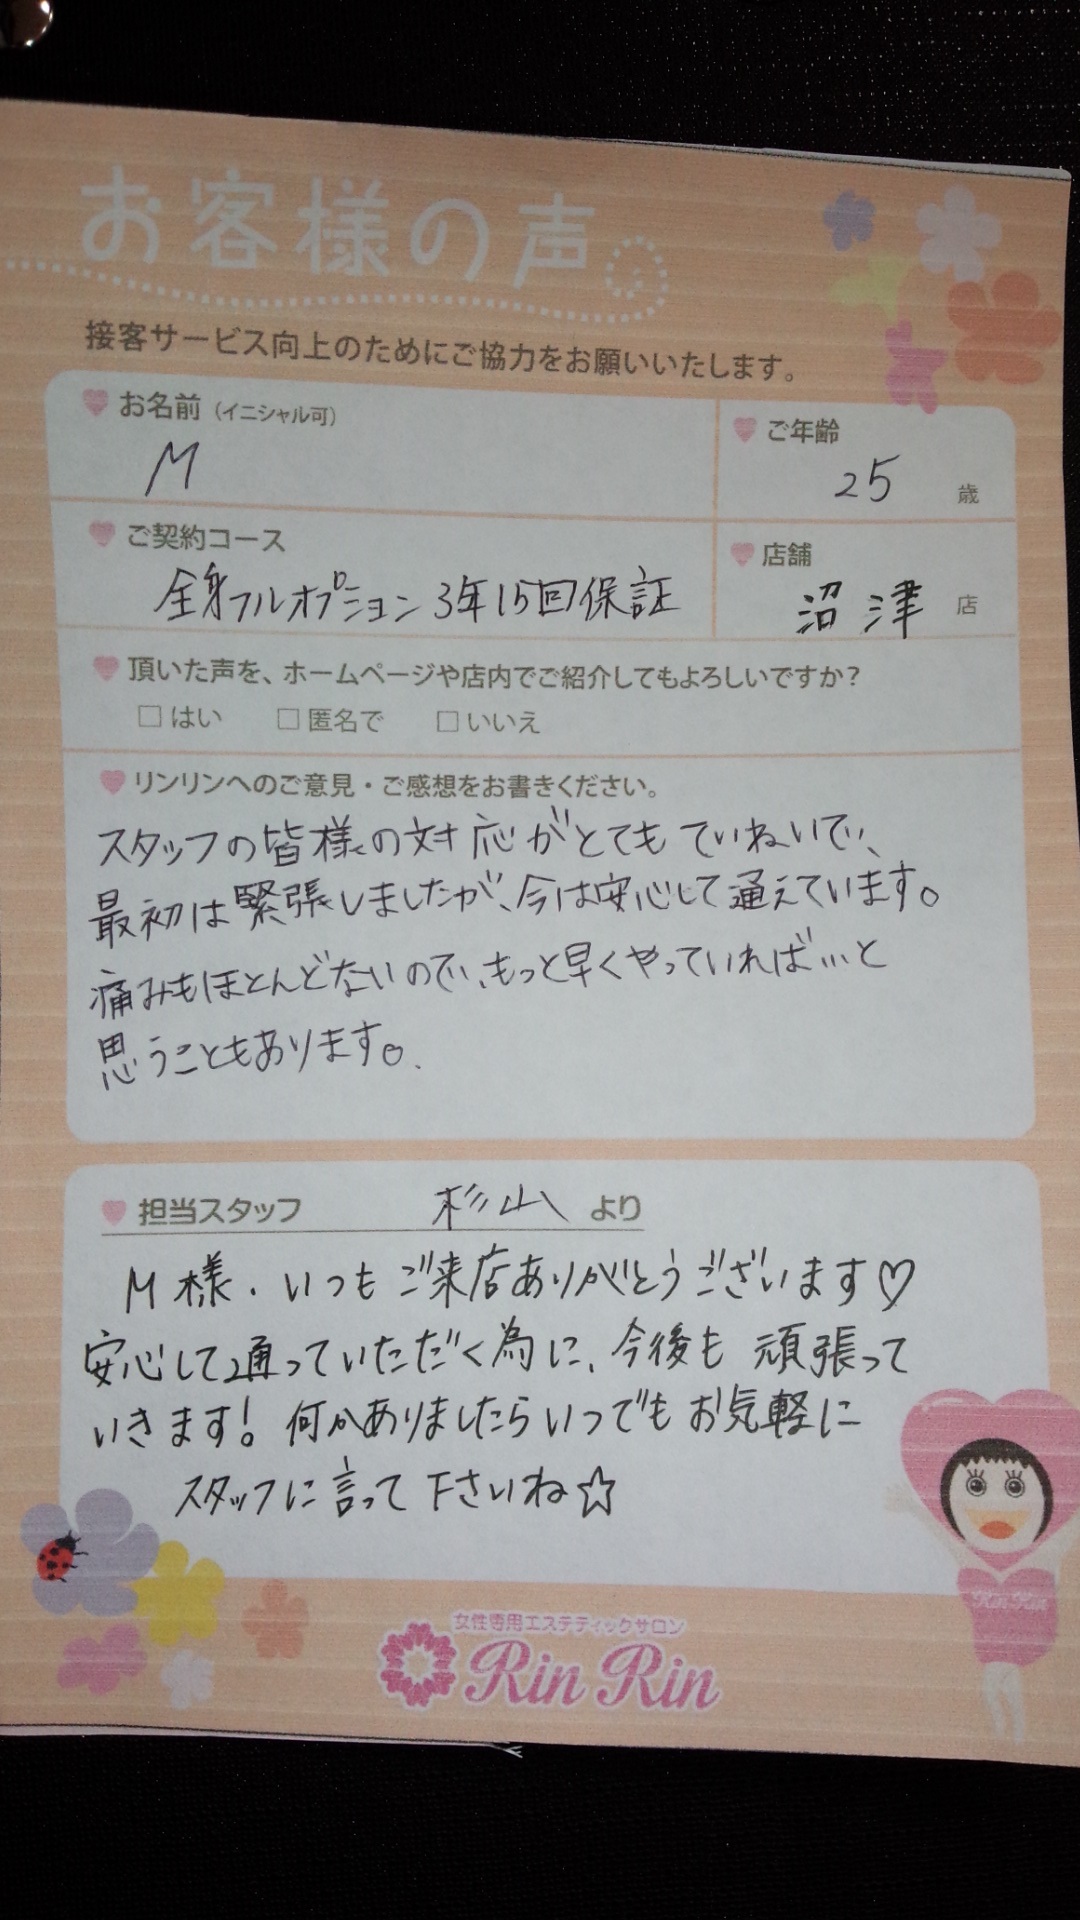 お客様の声
接客サービス向上のためにご協力をお願いいたします。
お名前（イニシャル可）
M
ご年齢
25 歳
ご契約コース
全身フルオプション3年15回保証
店舗
沼津 店
頂いた声を、ホームページや店内でご紹介してもよろしいですか？
□はい □匿名で □いいえ
リンリンへのご意見・ご感想をお書きください。
スタッフの皆様の対応がとてもていねいで、
最初は緊張しましたが、今は安心して通えています。
痛みもほとんどないので、もっと早くやっていれば…と
思うこともあります。
担当スタッフ 杉山 より
M様．いつもご来店ありがとうございます♡
安心して通っていただく為に、今後も頑張って
いきます！何かありましたらいつでもお気軽に
スタッフに言って下さいね☆
Rin Rin
女性専用エステティックサロン
Rin Rin